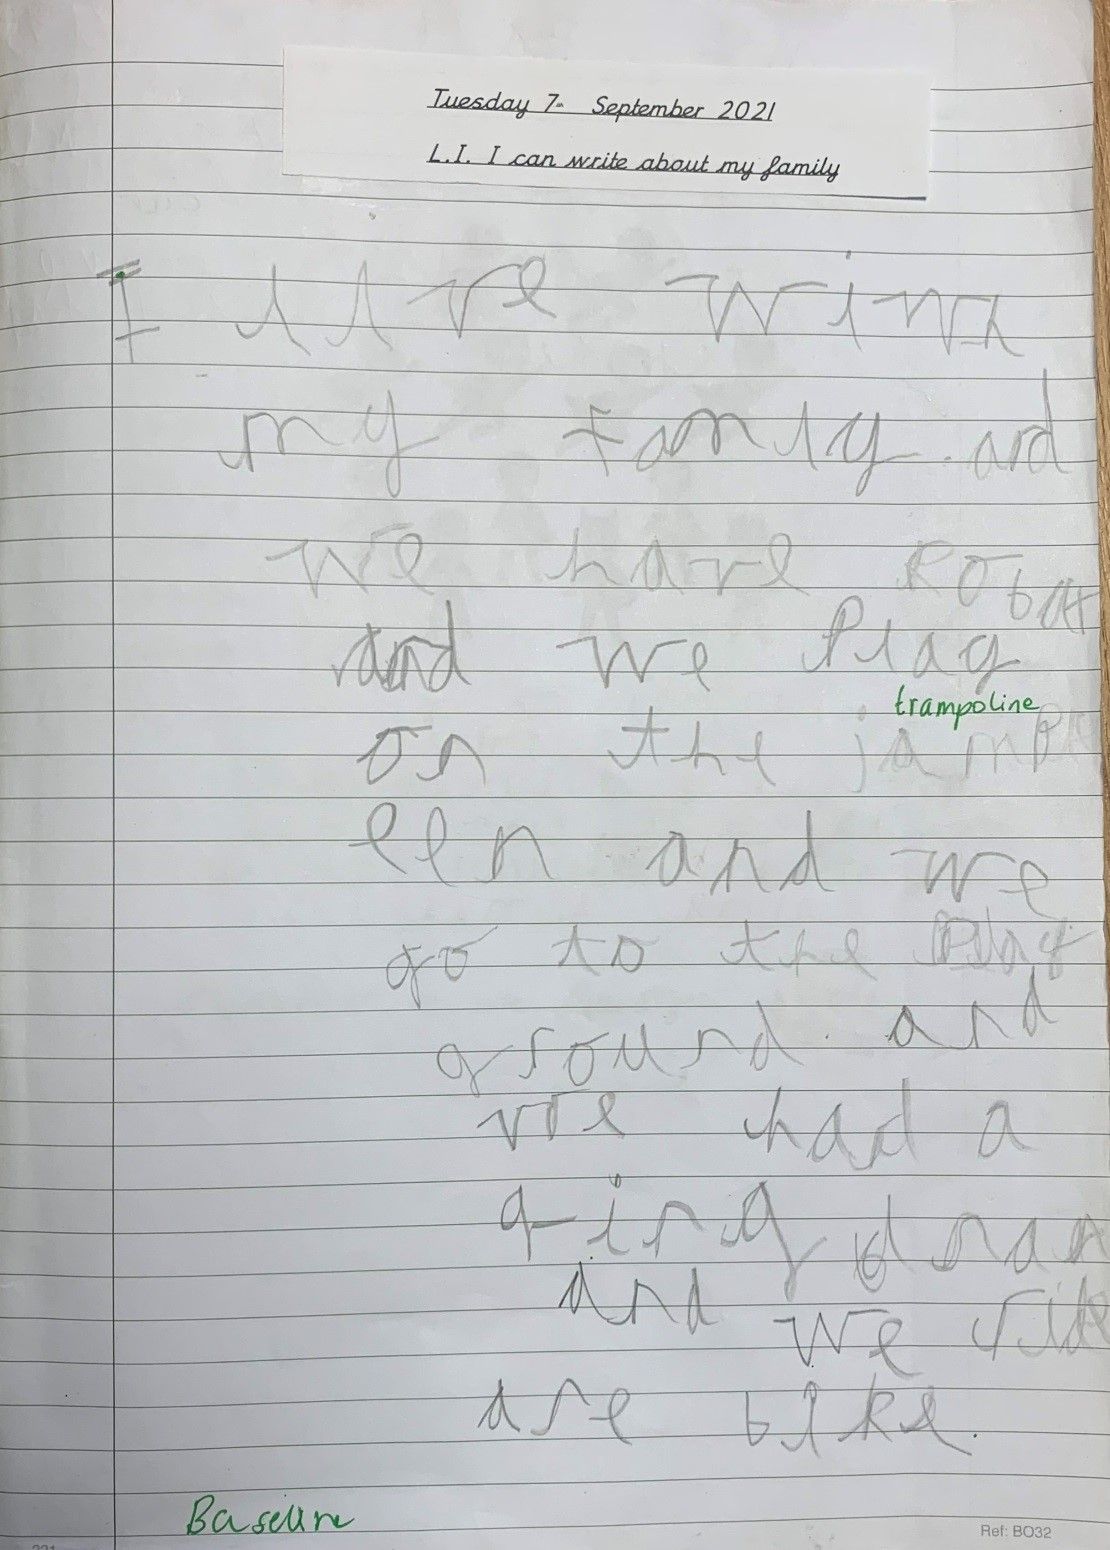 Tuesday 7th September 2021
L.I. I can write about my family
I live with
my family. and
we have robot
and we Plag
trampoline
on the jamp
een and we
go to the Play
ground. and
we had a
ging
and we ride
are bike.
Baseline
Ref: BO32